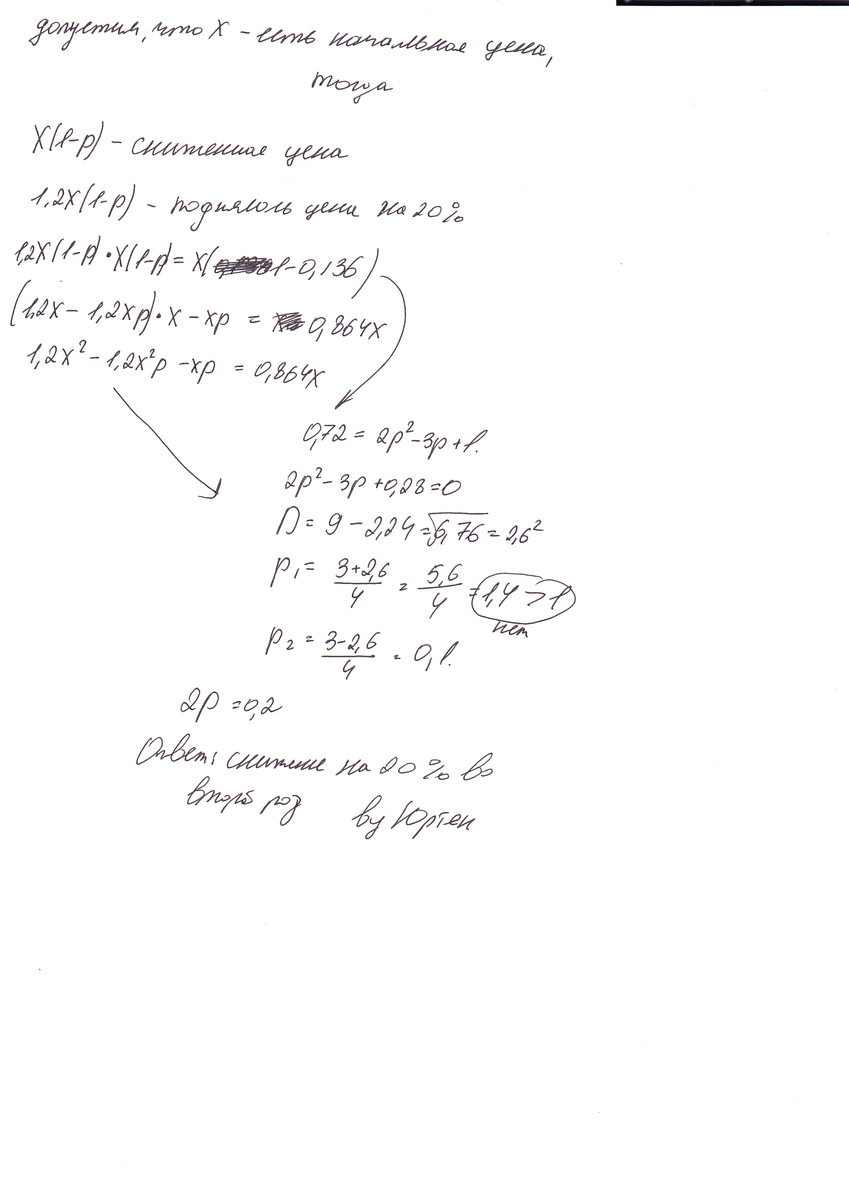 допустим, что X – есть начальная цена,
тогда
X(1-p) – сниженная цена
1,2X(1-p) – поднялась цена на 20%
1,2X(1-p)·X(1-p) = X(1-0,136)
(1,2x – 1,2xp)·x – xp = 0,864x
1,2x² – 1,2x²p – xp = 0,864x
0,72 = 2p² – 3p + 1.
2p² – 3p + 0,28 = 0
D = 9 – 2,24 = √6,76 = 2,6²
p₁ = (3+2,6)/4 = 5,6/4 = 1,4 > 1
нет
p₂ = (3-2,6)/4 = 0,1.
2p = 0,2
Ответ: снижение на 20% во
второй раз by Юртен